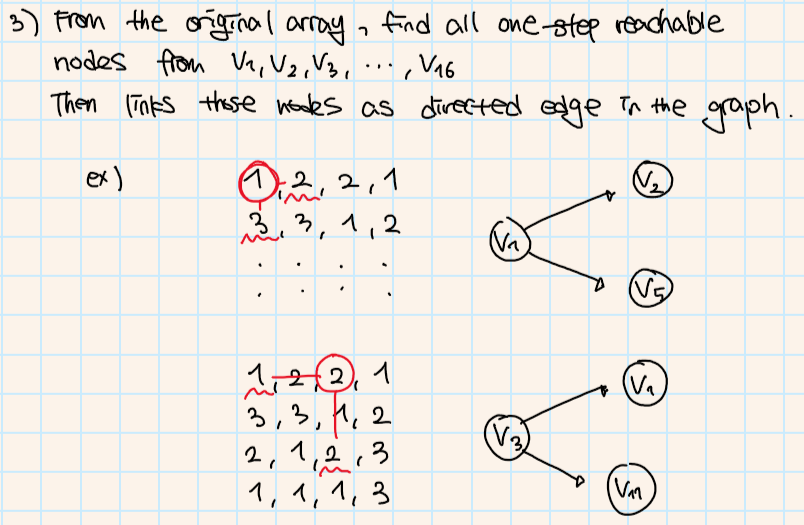 3) From the original array, find all one-step reachable
nodes from V1, V2, V3, ..., V16
Then links those nodes as directed edge in the graph.
ex)
1, 2, 2, 1
3, 3, 1, 2
. . . .
. . . .
V1
V2
V5
1, 2, 2, 1
3, 3, 1, 2
2, 1, 2, 3
1, 1, 1, 3
V3
V1
V11